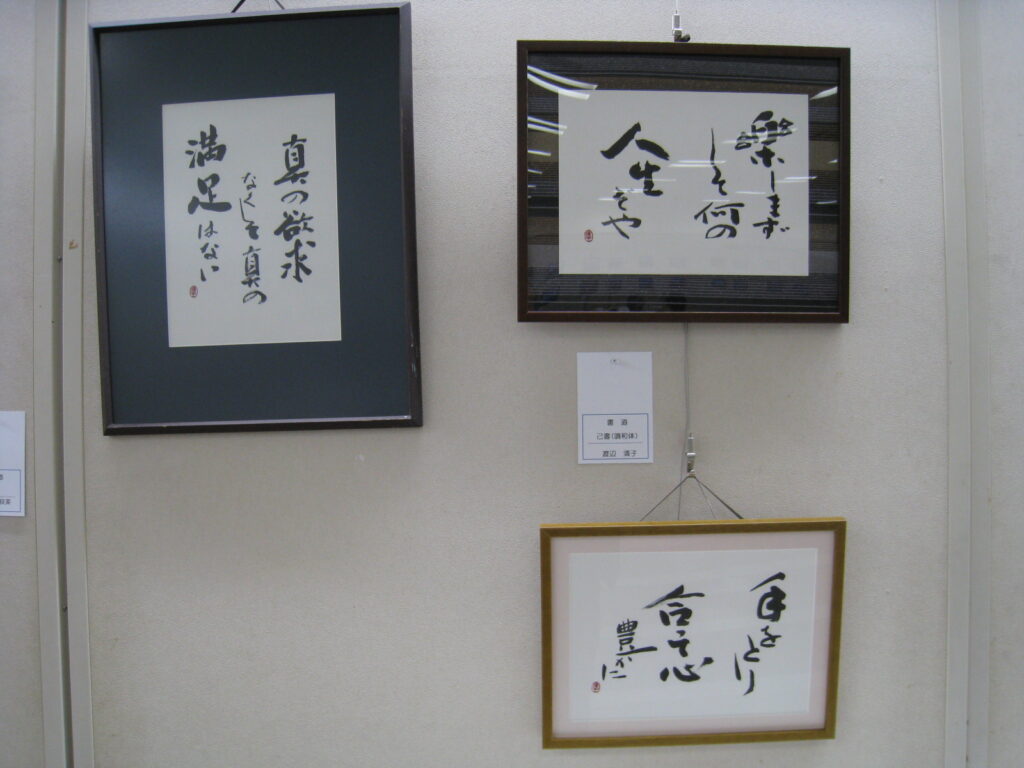 真の欲求
なくして真の
満足はない
楽しまず
して何の
人生ぞや
書道
己書(調和体)
渡辺 清子
手をとり
合って心
豊かに